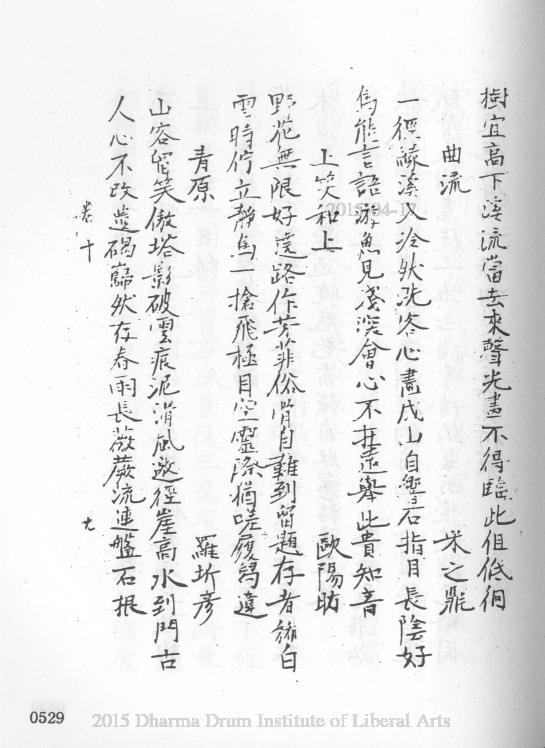 樹宜高下溪流當去來聲光畫不得臨此但低徊
曲流 米之鼎
一徑緣溪入泠然洗客心畫成山自疊石指目長陰好
鳥能言語游魚見淺深會心不在遠舉此貴知音
上笑和上 歐陽助
野花無限好遶路作芳菲俗滑自難到留題存者稀白
雲時佇立靜鳥一搶飛極目空靈際猶嗟履舄違
青原 羅圻彥
山容留笑傲塔影破雲痕泥滑風欹徑崖高水到門古
人心不改遺碣巋然存春雨長薇蕨流連盤石根
卷十 九
2015-04-17
0529 2015 Dharma Drum Institute of Liberal Arts